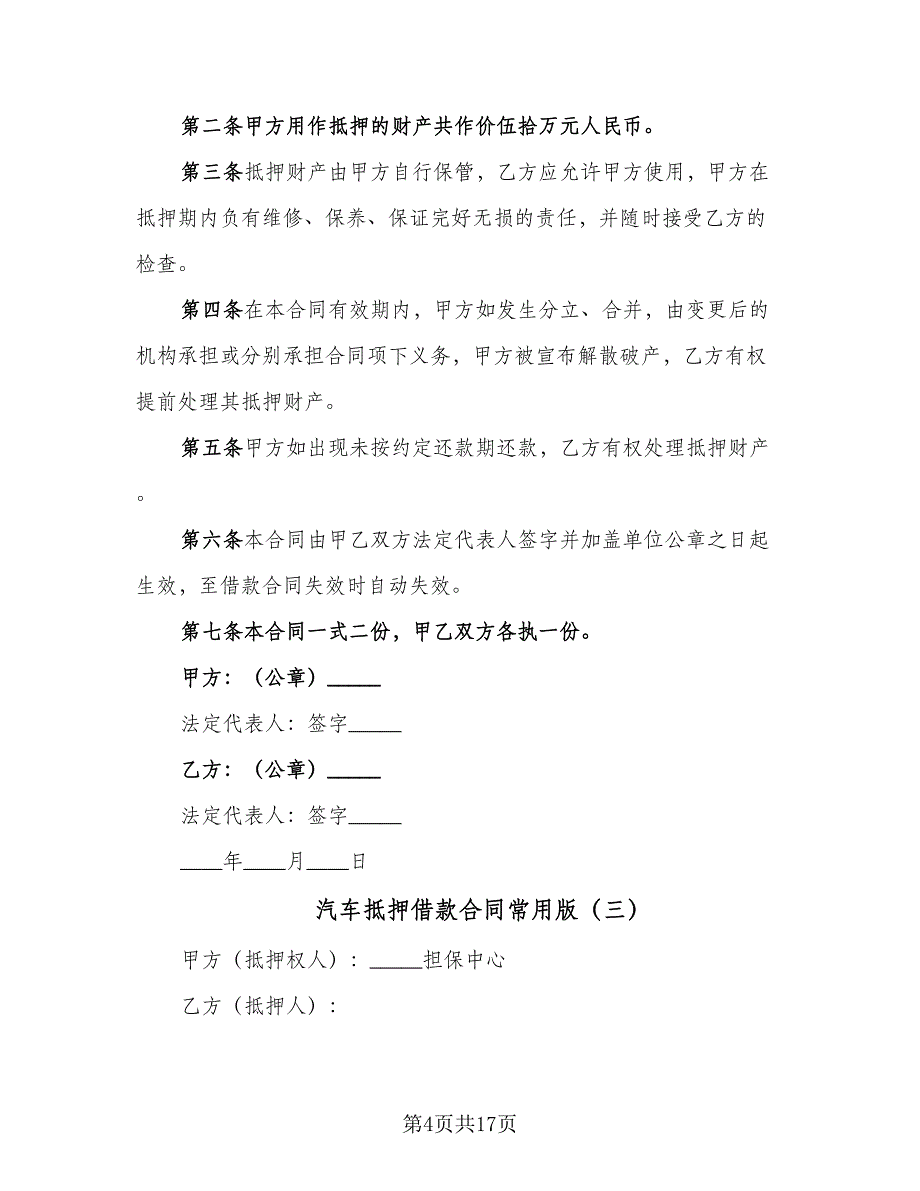 第二条甲方用作抵押的财产共作价伍拾万元人民币。
第三条抵押财产由甲方自行保管，乙方应允许甲方使用，甲方在
抵押期内负有维修、保养、保证完好无损的责任，并随时接受乙方的
检查。
第四条在本合同有效期内，甲方如发生分立、合并，由变更后的
机构承担或分别承担合同项下义务，甲方被宣布解散破产，乙方有权
提前处理其抵押财产。
第五条甲方如出现未按约定还款期还款，乙方有权处理抵押财产
。
第六条本合同由甲乙双方法定代表人签字并加盖单位公章之日起
生效，至借款合同失效时自动失效。
第七条本合同一式二份，甲乙双方各执一份。
甲方：（公章）_____
法定代表人：签字_____
乙方：（公章）_____
法定代表人：签字_____
____年____月____日
汽车抵押借款合同常用版（三）
甲方（抵押权人）：_____担保中心
乙方（抵押人）：
第4页共17页